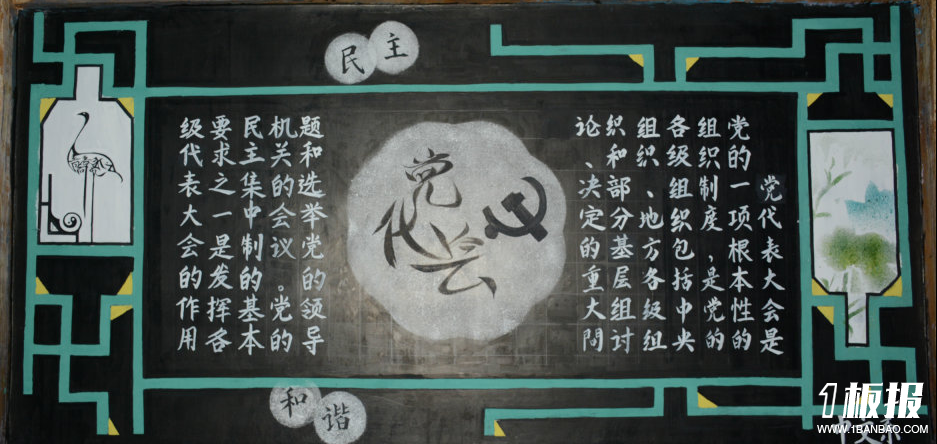 民主
党代表大会是
党的一项根本性的
组织制度，是党的
各级组织包括中央
组织、地方各级组
织和部分基层组讨
论、决定的重大问
党代会
题和选举党的领导
机关的会议。党的
民主集中制的基本
要求之一是发挥各
级代表大会的作用
和谐
1板报
WWW.1BANBAO.COM